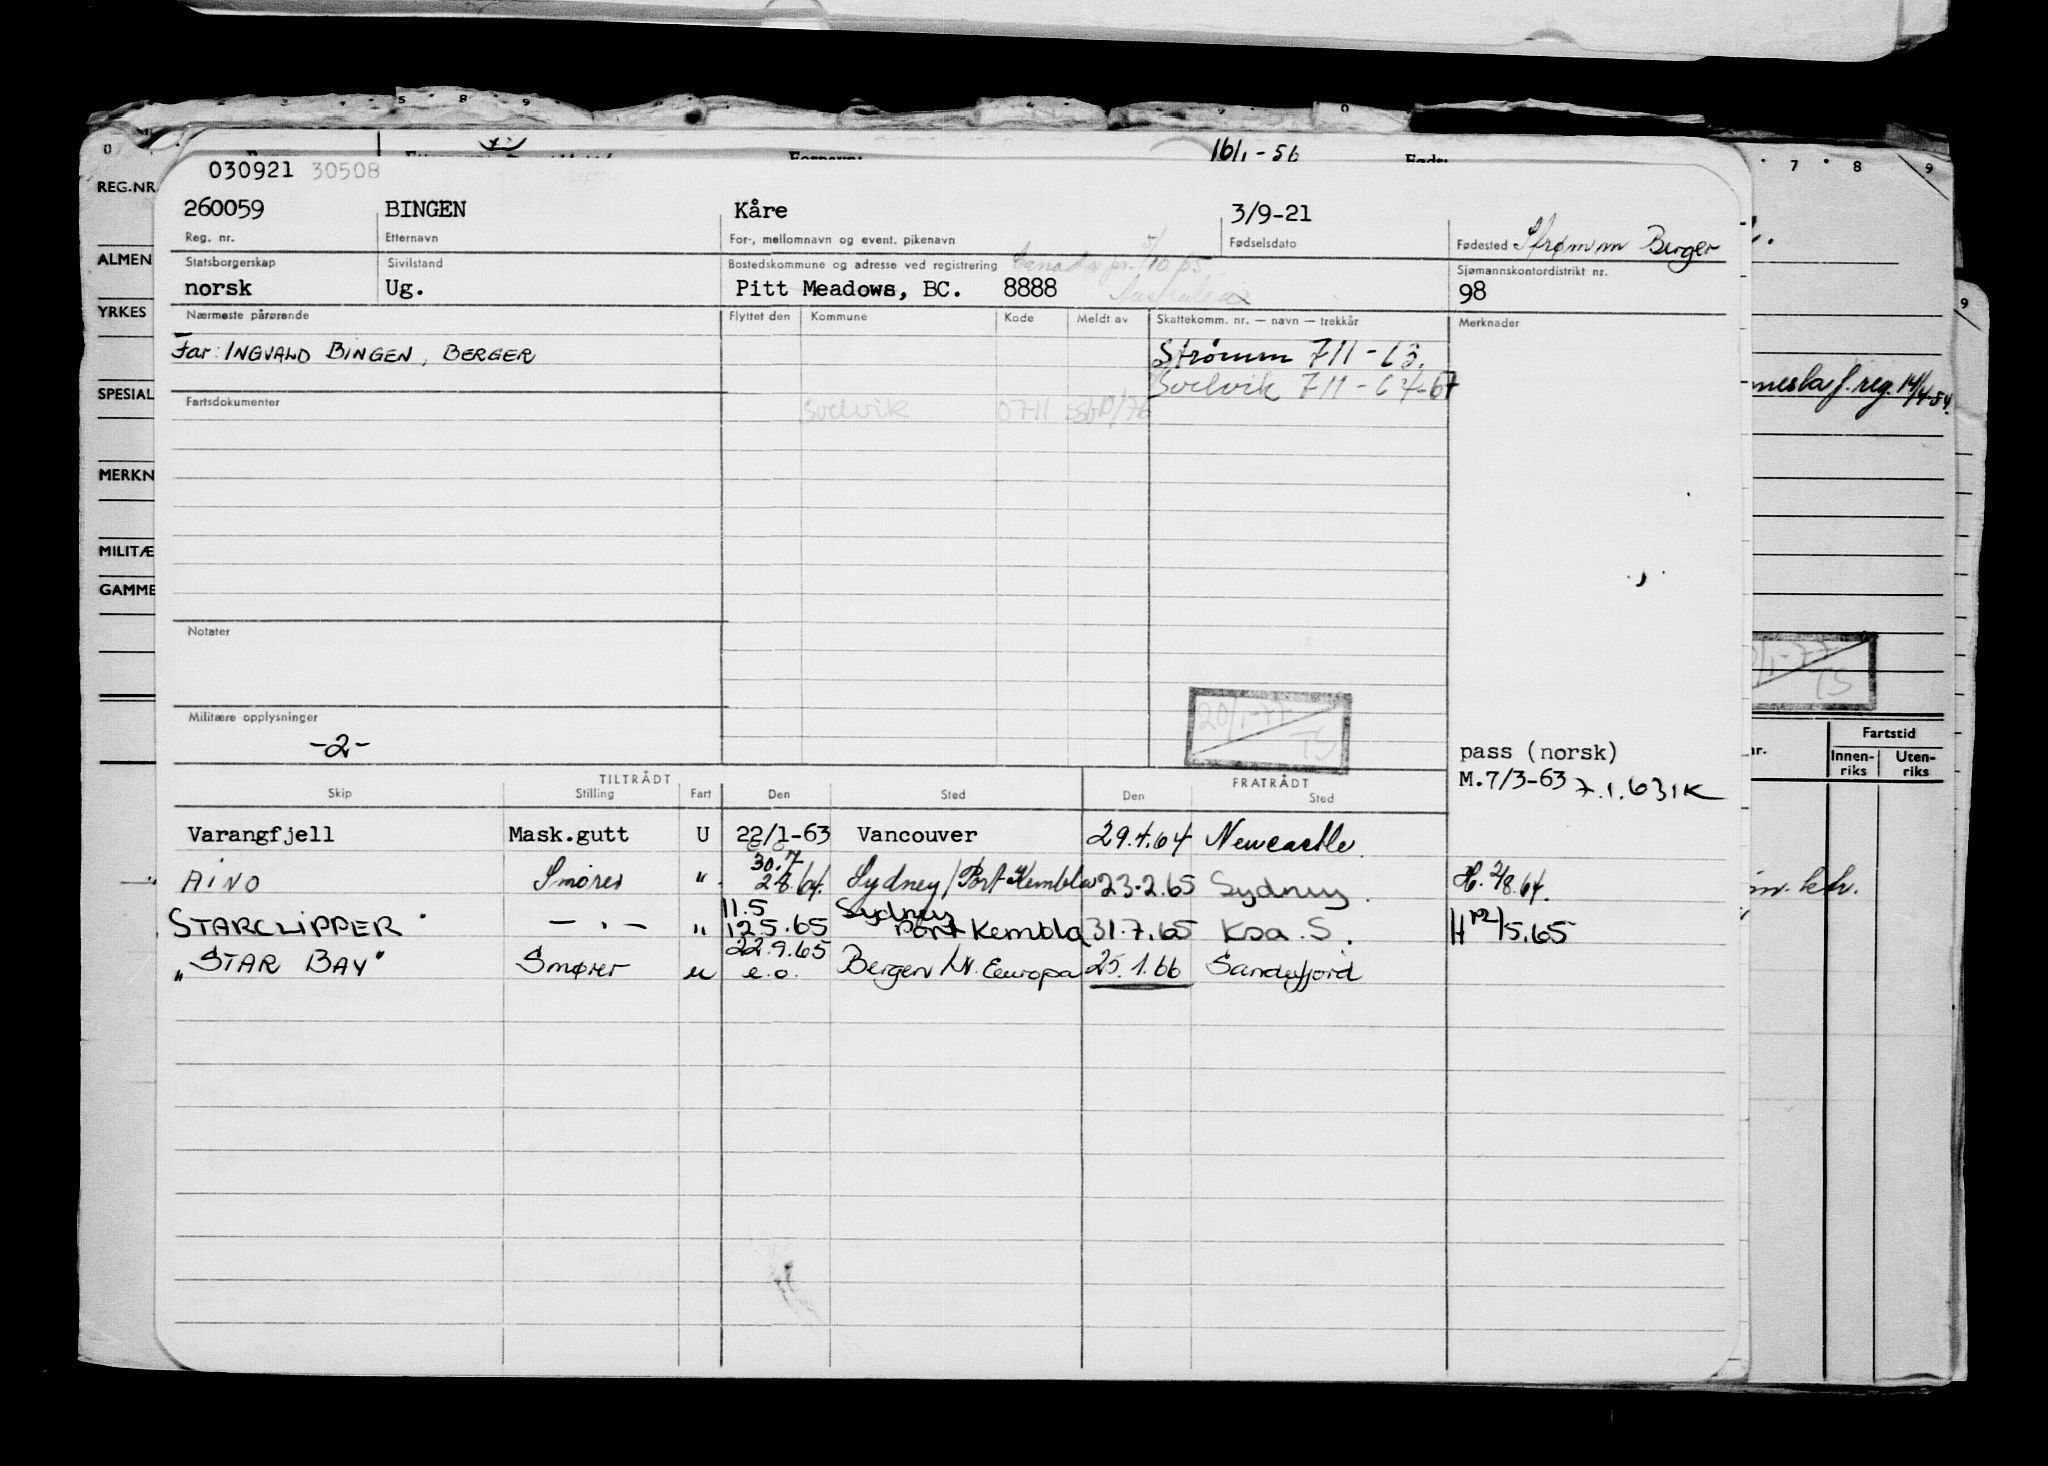 5 8 9
0 7 8 9
16/1-56
030921 30508
REG.NR
260059 BINGEN Kåre 3/9-21
Reg. nr. Etternavn For-, mellomnavn og event. pikenavn Fødselsdato Fødested Strømm Berger
ALMEN
Statsborgerskap Sivilstand Bostedskommune og adresse ved registrering Canada pr. 5/10 65 Sjømannskontordistrikt nr.
norsk Ug. Pitt Meadows, BC. 8888 Australia 98
YRKES
Nærmeste pårørende Flyttet den Kommune Kode Meldt av Skattekomm. nr. — navn — trekkår Merknader
Far: INGVALD BINGEN, BERGER Strømm 711-63.
Svelvik 711-64-67
f. reg. 14/4-54.
SPESIAL
Fartsdokumenter Svelvik 0711
MERKN
MILITÆ
GAMME
Notater
Militære opplysninger
-2-
20/1-77 TS
pass (norsk)
M.7/3-63 7.1.63 IK
Fartstid
Innen-riks Uten-riks
TILTRÅDT FRATRÅDT
Skip Stilling Fart Den Sted Den Sted
Varangfjell Mask.gutt U 22/1-63 Vancouver 29.4.64 Newcastle.
30.7
AINO Smører " 2.8.64. Sydney/Port Kembla 23.2.65 Sydney. H. 2/8.64.
11.5 Sydney
STARCLIPPER - " - " 12.5.65 Port Kembla 31.7.65 Koa.S. H 12/5.65
22.9.65
"STAR BAY" Smører u e.o. Bergen / N. Europa 25.1.66 Sandefjord